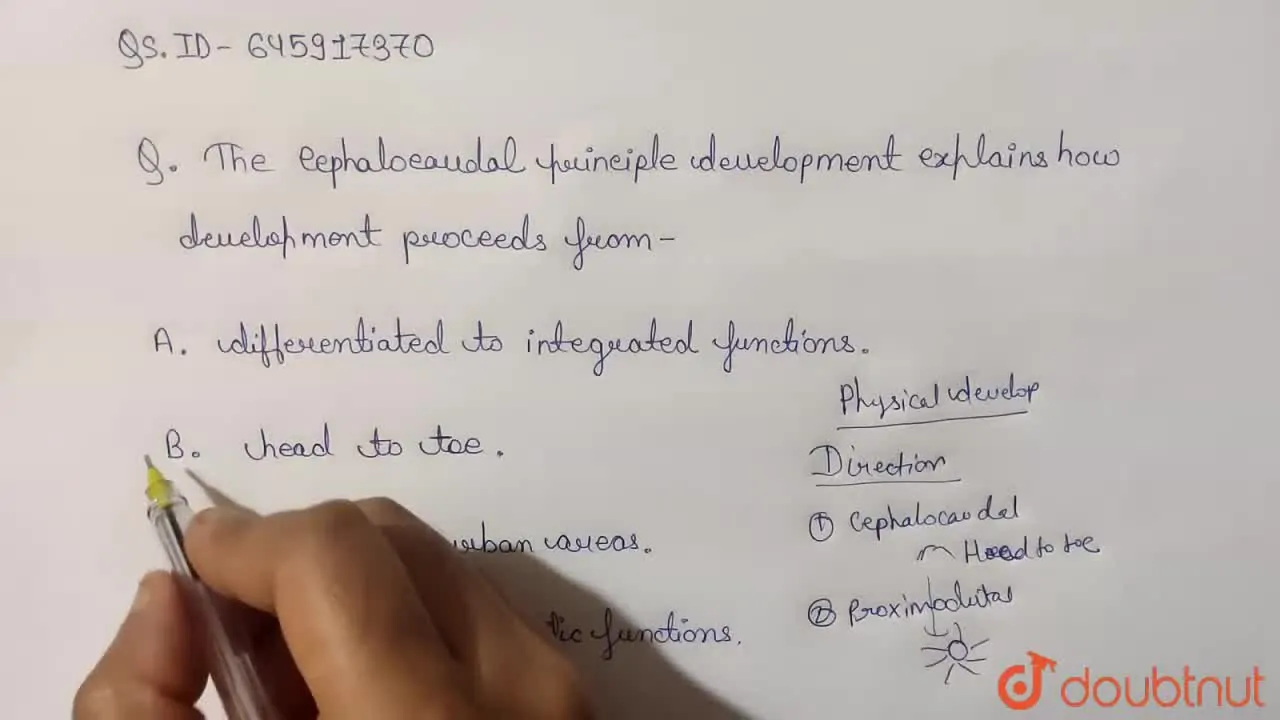 QS. ID - 645917370
Q. The cephalocaudal principle development explains how
development proceeds from -
A. differentiated to integrated functions.
Physical develop
B. head to toe.
Direction
① Cephalocaudal
Head to toe
urban areas.
②
functions.
doubtnut